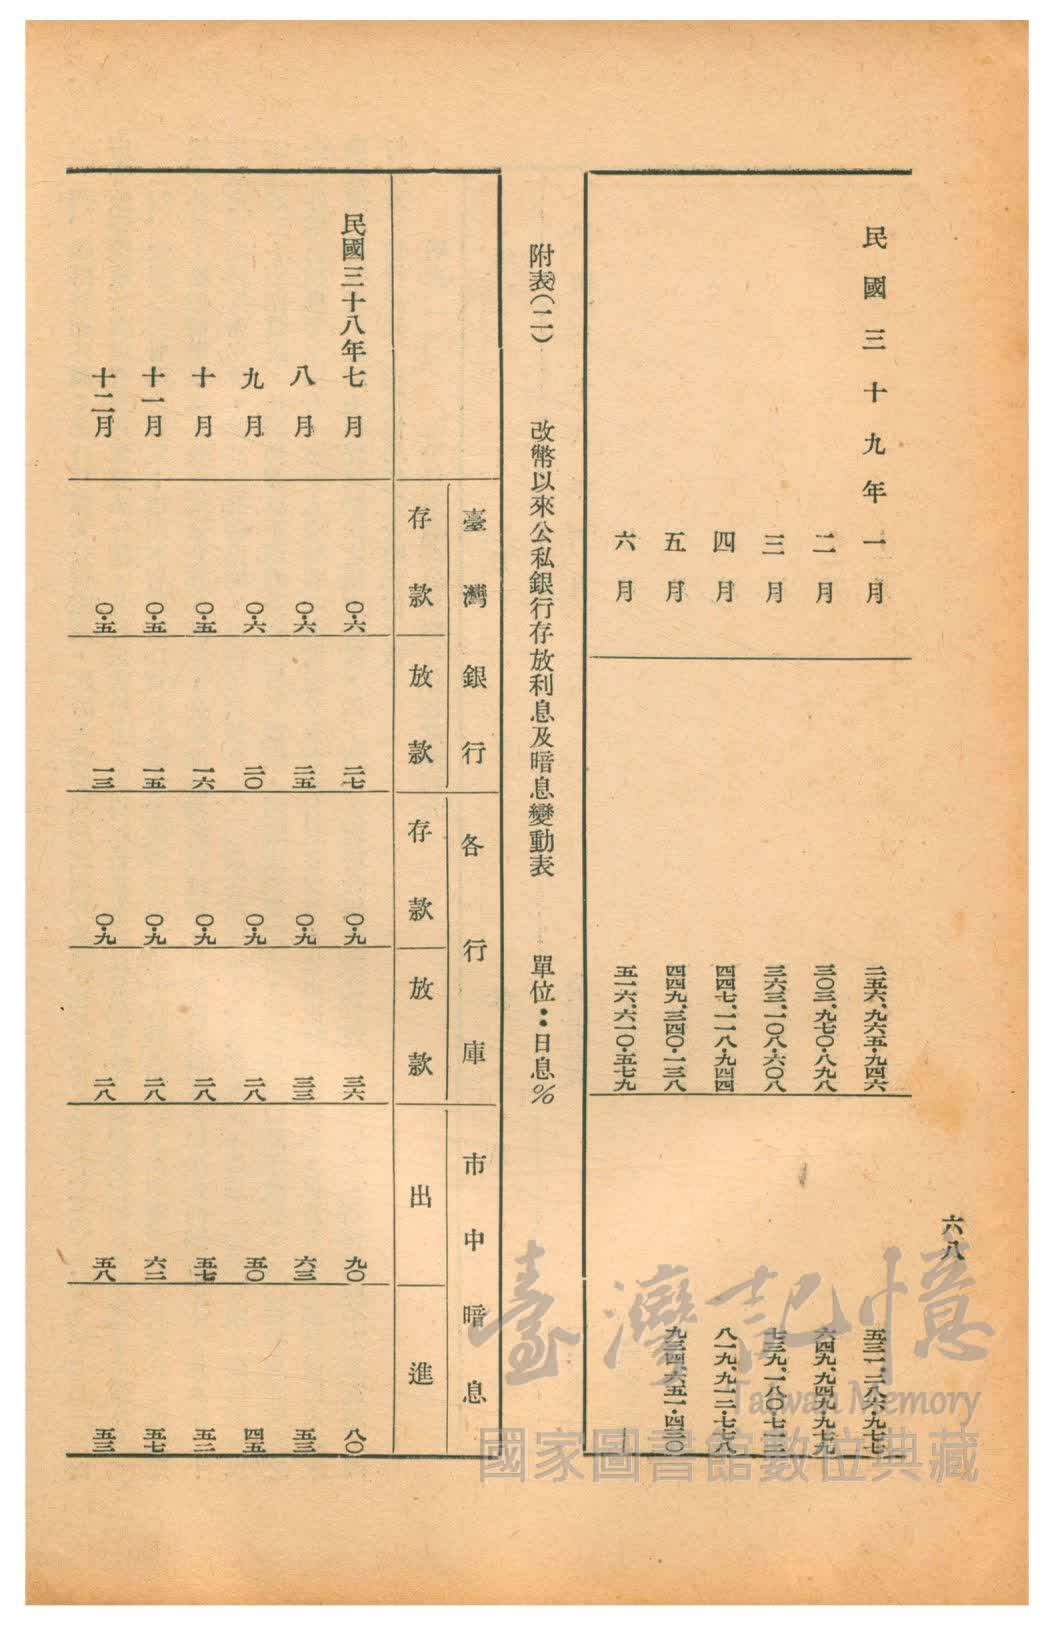 六八
民國三十九年一月 二五六、九六五・九四六 五三一、三八六・九七七
二月 三〇三、九七〇・八九八 六四九、九四九・九七九
三月 三六三、一〇八・六〇八 七三九、一八〇・七一三
四月 四四七、一一八・九四四 八一九、九一二・七七八
五月 四四九、三四〇・一三八 九三四、六五一・四三〇
六月 五一六、六一〇・五七九
附表(二) 改幣以來公私銀行存放利息及暗息變動表 單位：日息%
臺灣銀行 各行庫 市中暗息
存款 放款 存款 放款 出 進
民國三十八年七月 〇・六 二七 〇・九 三六 九〇 八〇
八月 〇・六 二五 〇・九 三三 六三 五三
九月 〇・六 二〇 〇・九 二八 五〇 四五
十月 〇・五 一六 〇・九 二八 五七 五二
十一月 〇・五 一五 〇・九 二八 六二 五七
十二月 〇・五 一三 〇・九 二八 五八 五三
臺灣記憶
Taiwan Memory
國家圖書館數位典藏